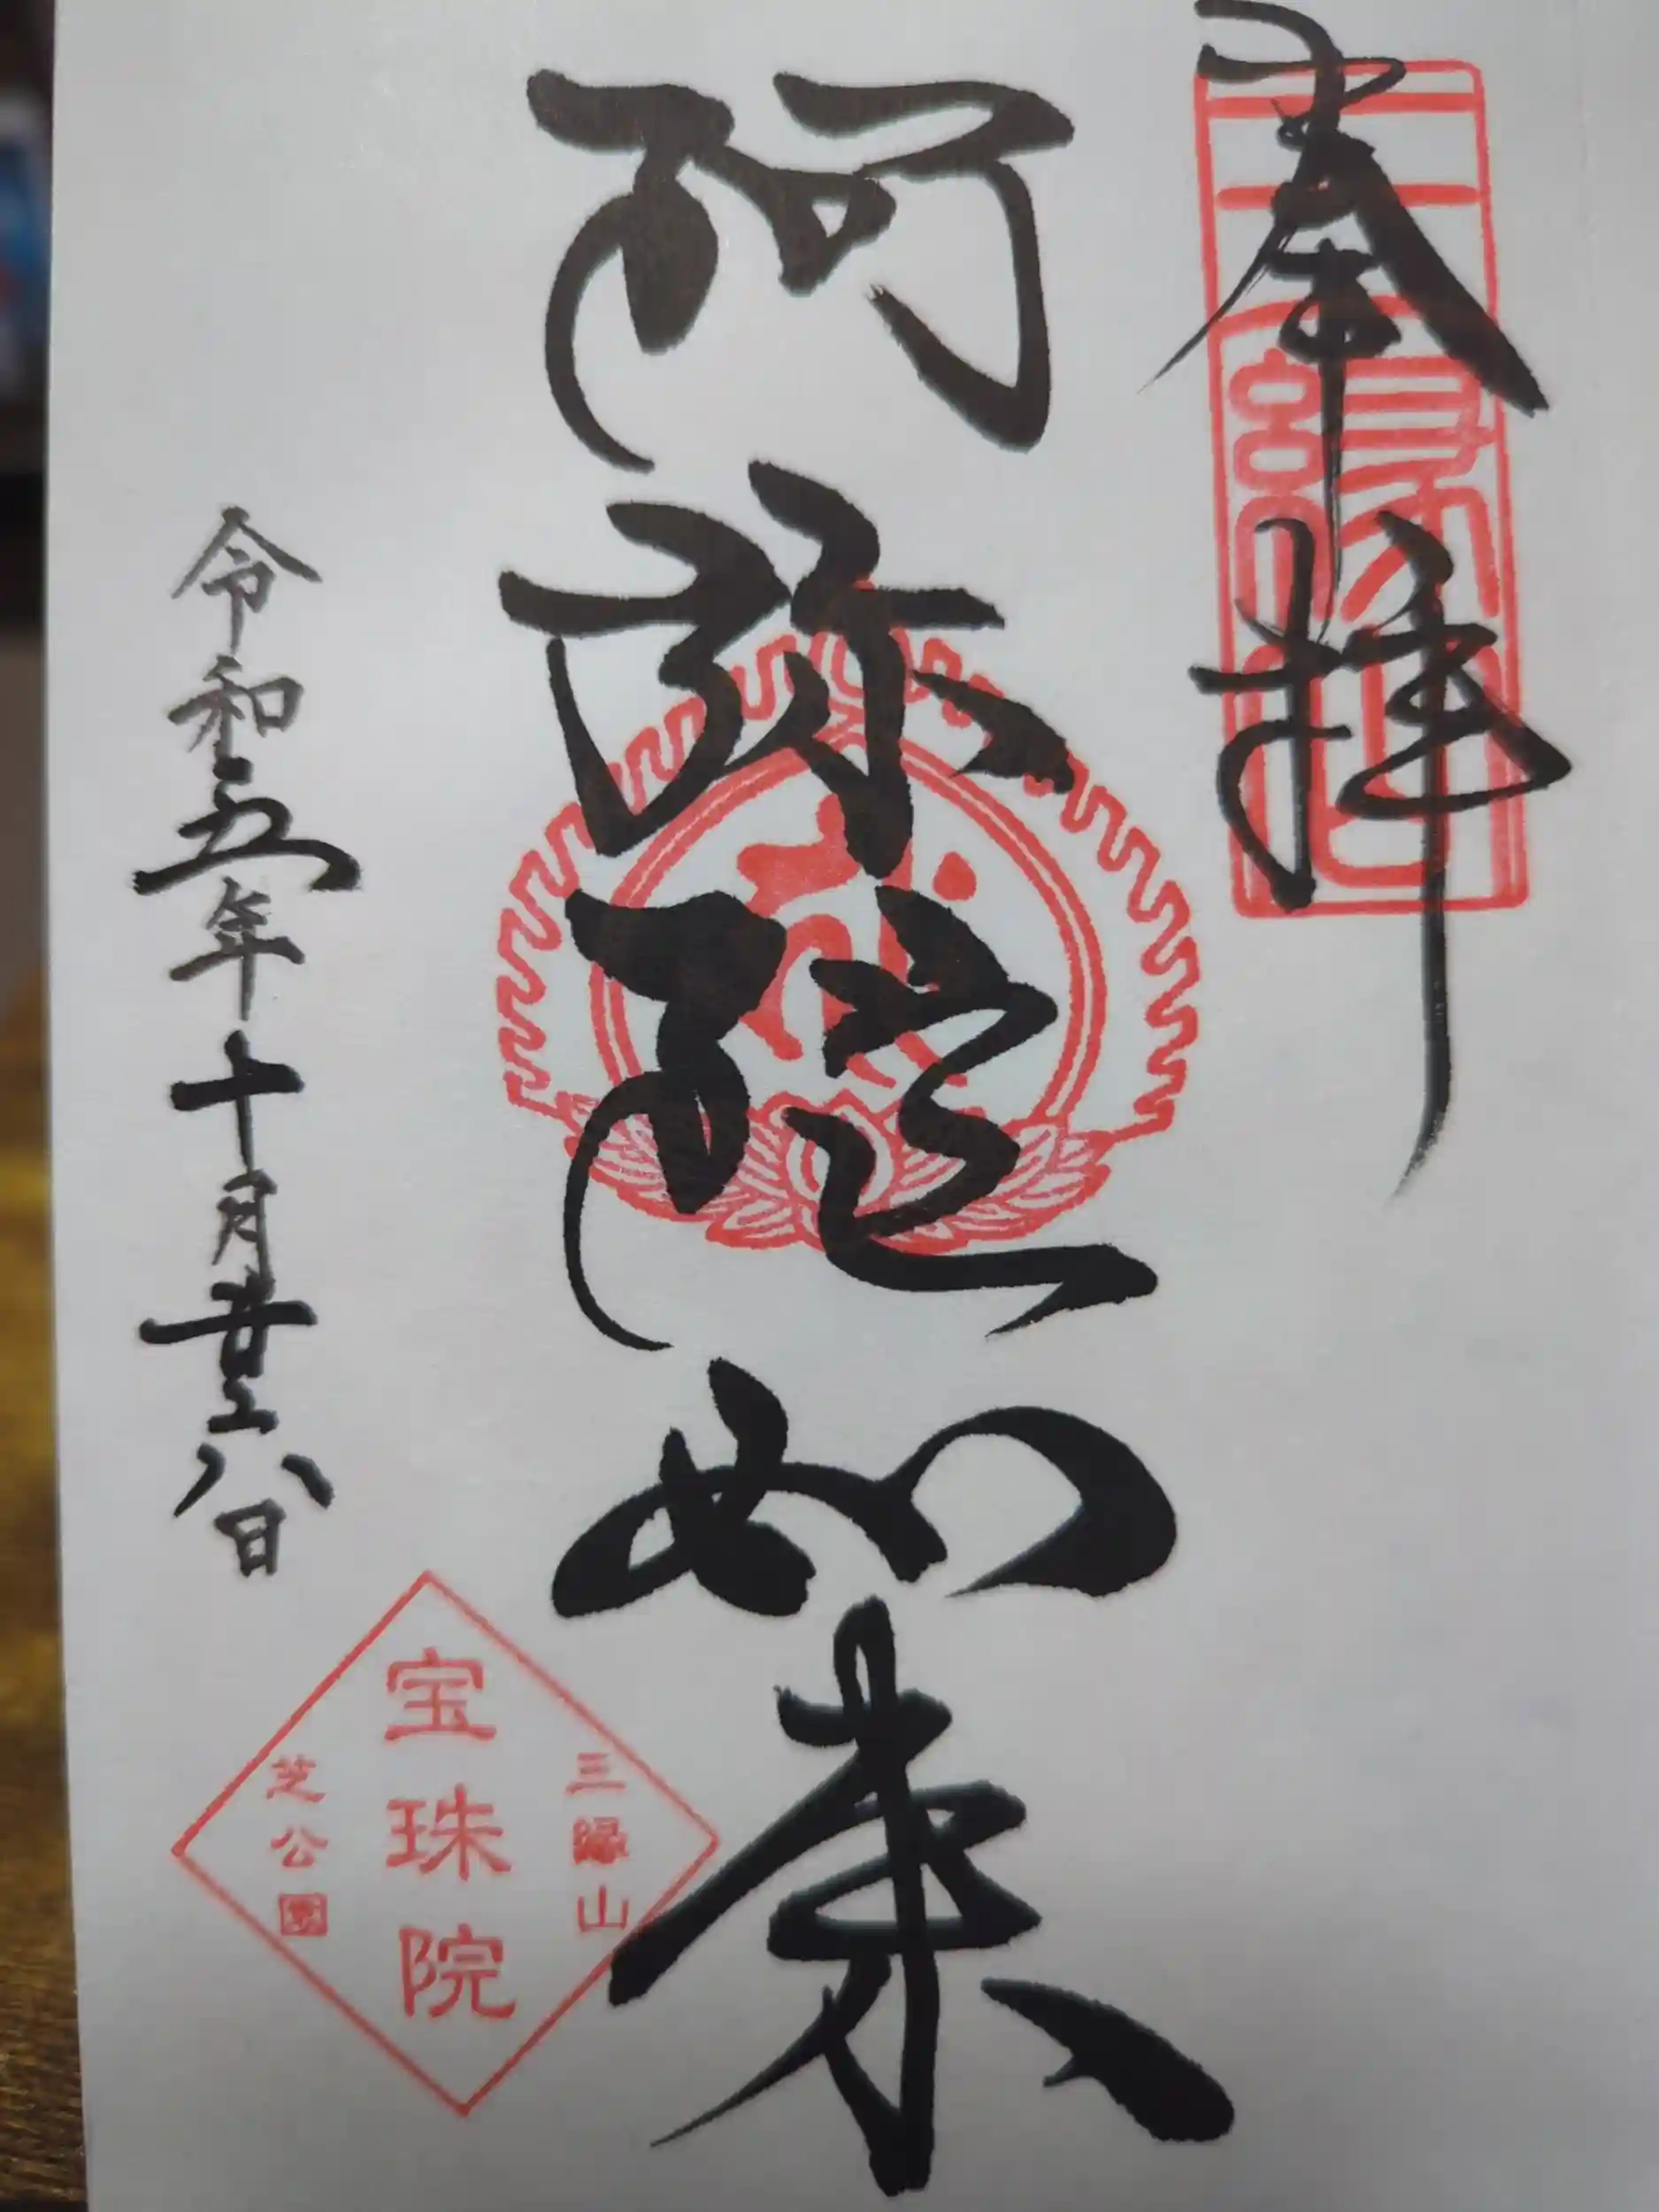 奉拝
三縁山
阿弥陀如来
令和五年十月廿八日
三縁山
宝珠院
芝公園